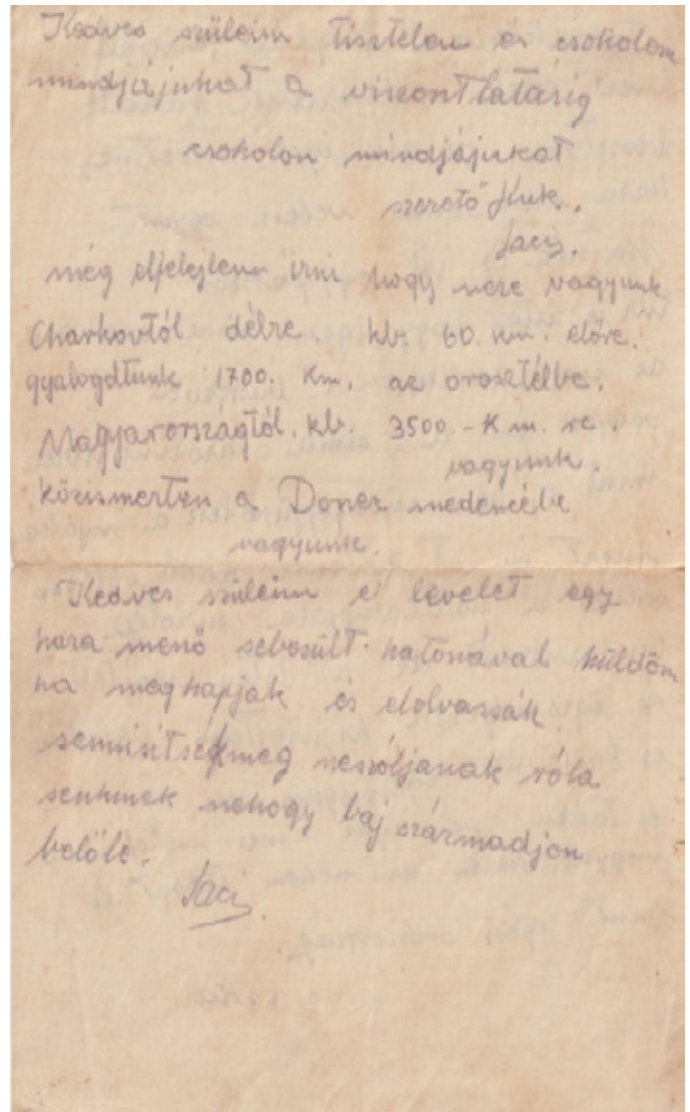 Kedves szüleim tisztelem és csokolom
mindjájukat a viszontlatásig
csokolom mindjájukat
szerető fiuk.
Laci.
még elfelejtem irni hogy mere vagyunk
Charkovtól délre. kb. 60. km. előre.
gyalogoltunk 1700. Km. az orosztélbe.
Magyarországtól. kb. 3500.-Km. re.
vagyunk.
közismerten a Donez medencébe
vagyunk.
Kedves szüleim ei levelet egy
haza menő sebosült hatonával küldöm
ha meghapják és elolvassák
semmisítség meg neszóljanak róla
senkinek nehogy baj származdjon
belőle.
Laci.